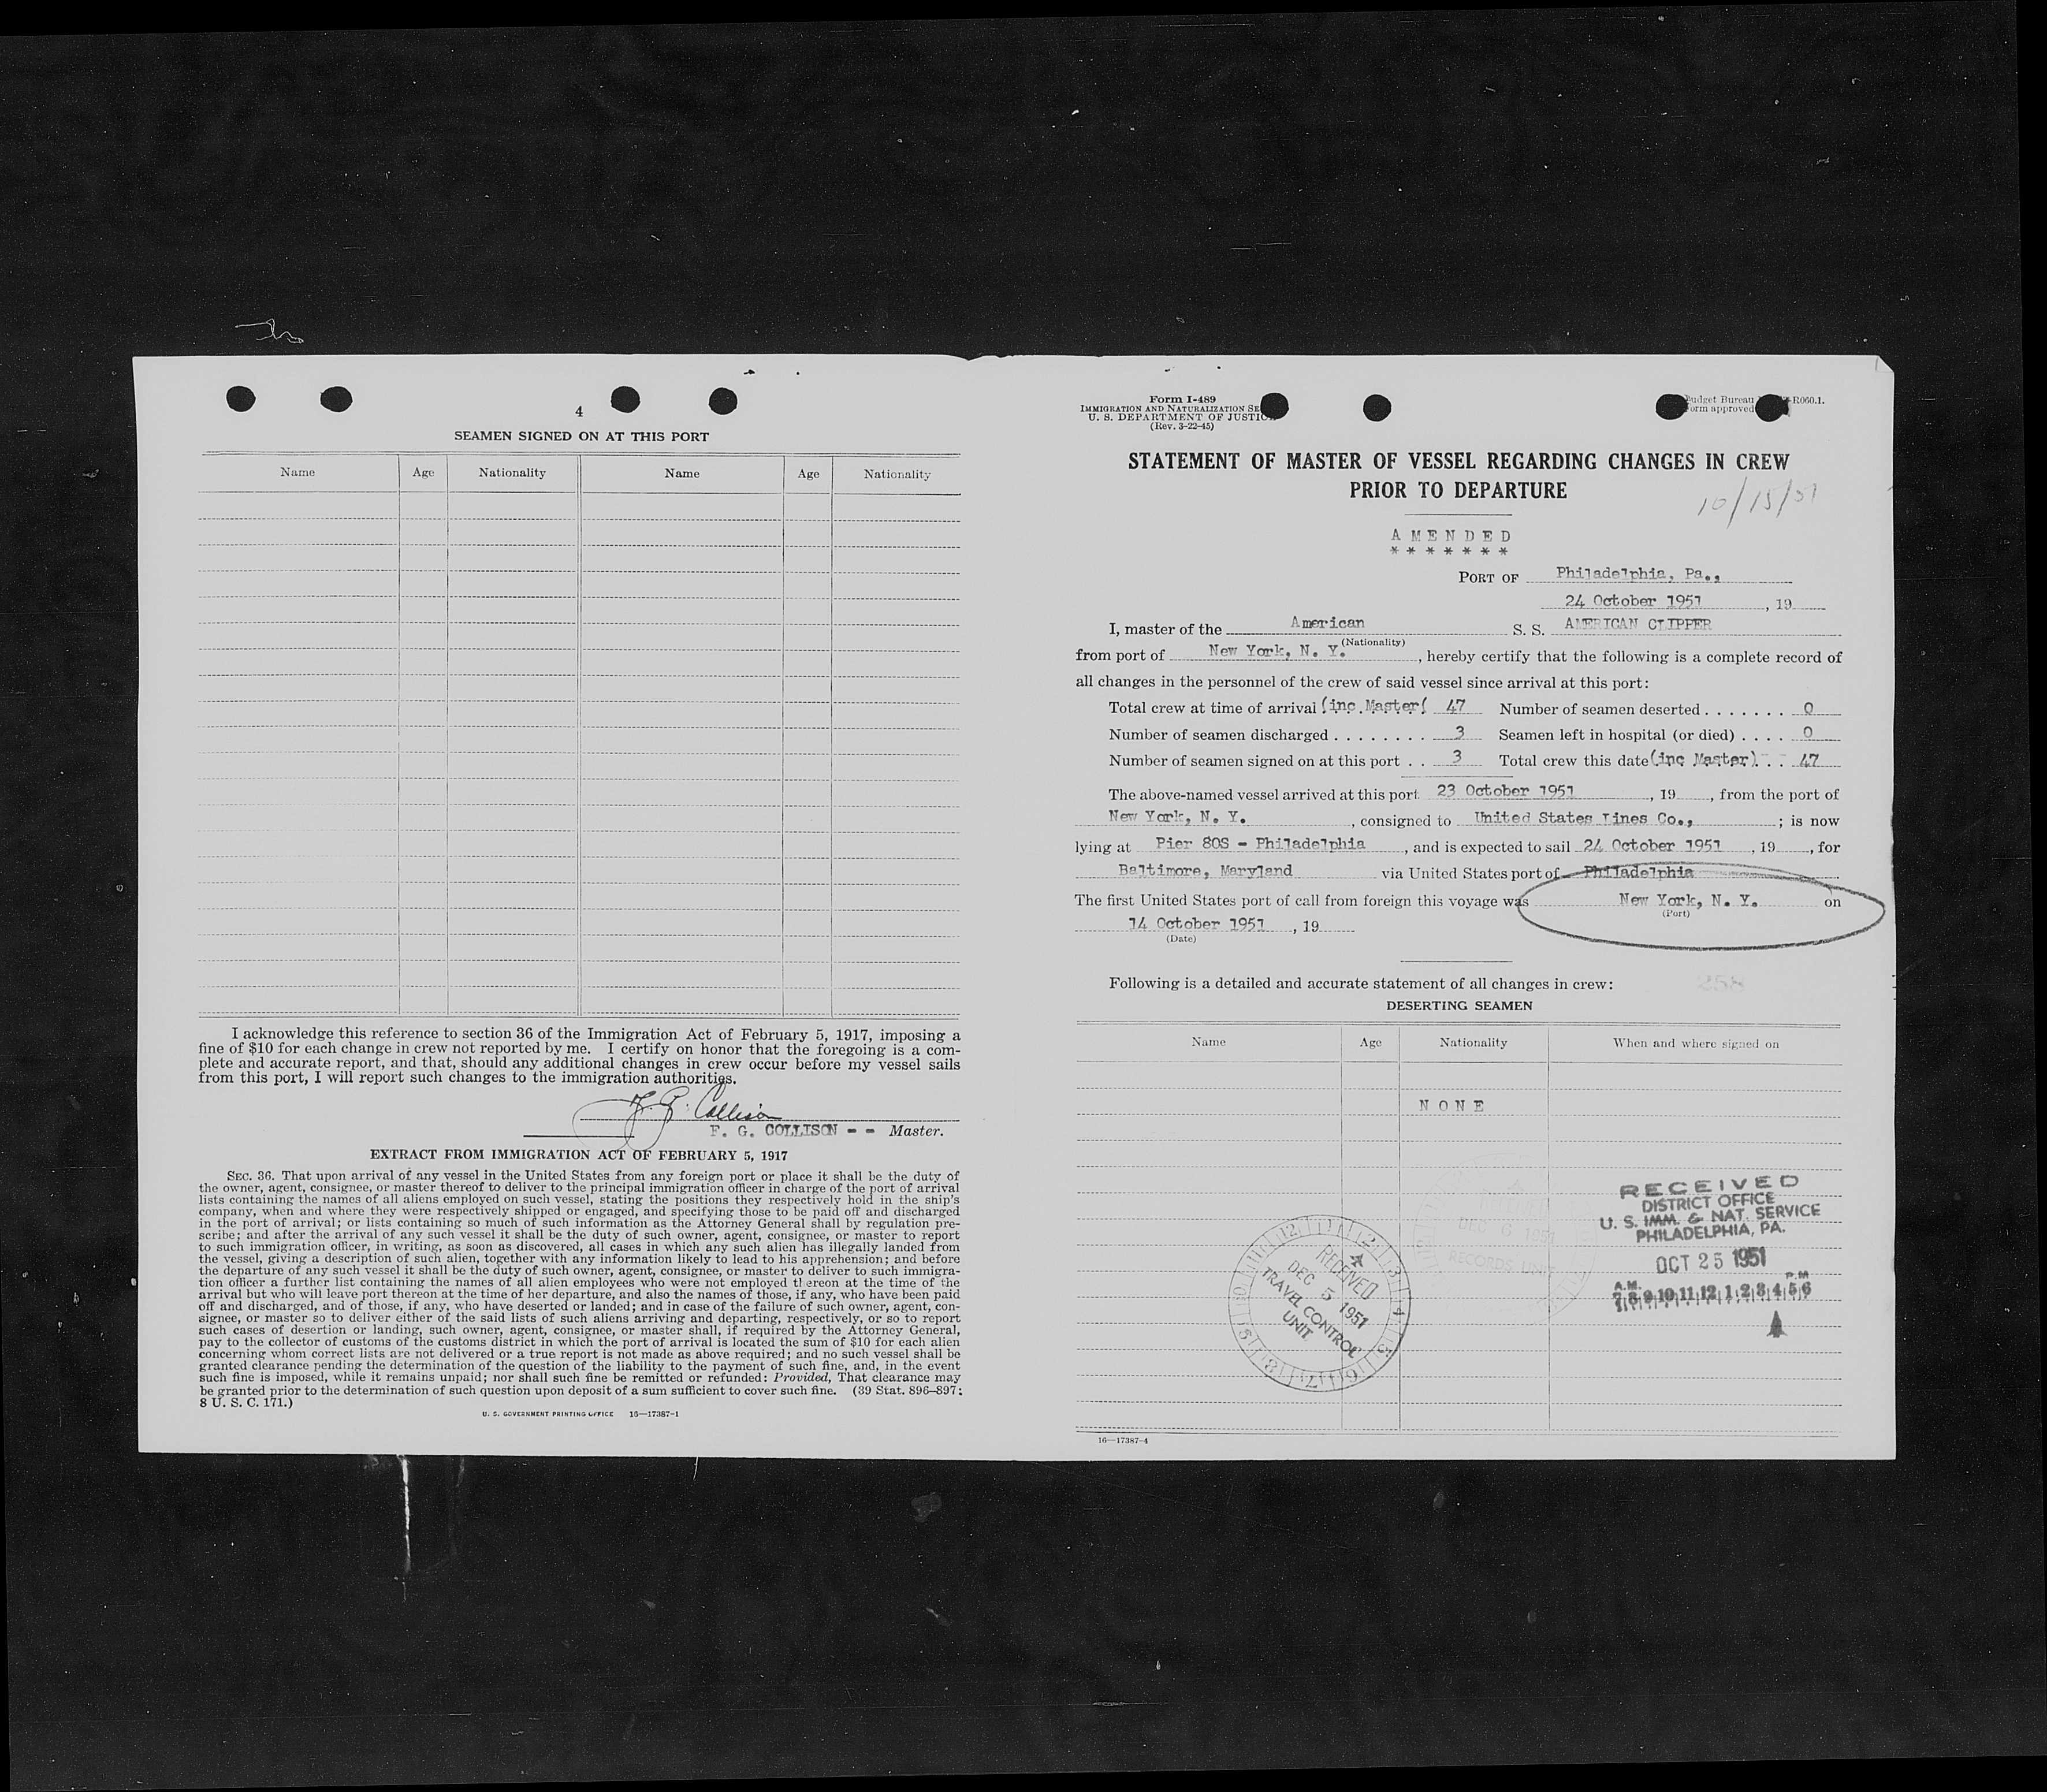 4
SEAMEN SIGNED ON AT THIS PORT
Name Age Nationality Name Age Nationality
I acknowledge this reference to section 36 of the Immigration Act of February 5, 1917, imposing a
fine of $10 for each change in crew not reported by me. I certify on honor that the foregoing is a com-
plete and accurate report, and that, should any additional changes in crew occur before my vessel sails
from this port, I will report such changes to the immigration authorities.
F. G. Collison
F. G. COLLISON - - Master.
EXTRACT FROM IMMIGRATION ACT OF FEBRUARY 5, 1917
SEC. 36. That upon arrival of any vessel in the United States from any foreign port or place it shall be the duty of
the owner, agent, consignee, or master thereof to deliver to the principal immigration officer in charge of the port of arrival
lists containing the names of all aliens employed on such vessel, stating the positions they respectively hold in the ship's
company, when and where they were respectively shipped or engaged, and specifying those to be paid off and discharged
in the port of arrival; or lists containing so much of such information as the Attorney General shall by regulation pre-
scribe; and after the arrival of any such vessel it shall be the duty of such owner, agent, consignee, or master to report
to such immigration officer, in writing, as soon as discovered, all cases in which any such alien has illegally landed from
the vessel, giving a description of such alien, together with any information likely to lead to his apprehension; and before
the departure of any such vessel it shall be the duty of such owner, agent, consignee, or master to deliver to such immigra-
tion officer a further list containing the names of all alien employees who were not employed thereon at the time of the
arrival but who will leave port thereon at the time of her departure, and also the names of those, if any, who have been paid
off and discharged, and of those, if any, who have deserted or landed; and in case of the failure of such owner, agent, con-
signee, or master so to deliver either of the said lists of such aliens arriving and departing, respectively, or so to report
such cases of desertion or landing, such owner, agent, consignee, or master shall, if required by the Attorney General,
pay to the collector of customs of the customs district in which the port of arrival is located the sum of $10 for each alien
concerning whom correct lists are not delivered or a true report is not made as above required; and no such vessel shall be
granted clearance pending the determination of the question of the liability to the payment of such fine, and, in the event
such fine is imposed, while it remains unpaid; nor shall such fine be remitted or refunded: Provided, That clearance may
be granted prior to the determination of such question upon deposit of a sum sufficient to cover such fine. (39 Stat. 896-897;
8 U. S. C. 171.)
U. S. GOVERNMENT PRINTING OFFICE 16—17387-1
Form I-489
IMMIGRATION AND NATURALIZATION SE
U. S. DEPARTMENT OF JUSTIC
(Rev. 3-22-45)
Budget Bureau R060.1.
Form approved
STATEMENT OF MASTER OF VESSEL REGARDING CHANGES IN CREW
PRIOR TO DEPARTURE
10/15/51
A M E N D E D
* * * * * * *
PORT OF Philadelphia, Pa.,
24 October 1951, 19
I, master of the American S. S. AMERICAN CLIPPER
(Nationality)
from port of New York, N. Y., hereby certify that the following is a complete record of
all changes in the personnel of the crew of said vessel since arrival at this port:
Total crew at time of arrival (inc Master( 47 Number of seamen deserted . . . . . . . 0
Number of seamen discharged . . . . . . . . 3 Seamen left in hospital (or died) . . . . 0
Number of seamen signed on at this port . . 3 Total crew this date (inc Master) . . 47
The above-named vessel arrived at this port 23 October 1951, 19, from the port of
New York, N. Y., consigned to United States Lines Co.,; is now
lying at Pier 80S - Philadelphia, and is expected to sail 24 October 1951, 19, for
Baltimore, Maryland via United States port of Philadelphia
The first United States port of call from foreign this voyage was New York, N. Y. on
(Port)
14 October 1951, 19
(Date)
Following is a detailed and accurate statement of all changes in crew:
258
DESERTING SEAMEN
Name Age Nationality When and where signed on
N O N E
DEC 6 1951
RECORDS UNIT
RECEIVED
DEC 5 1951
TRAVEL CONTROL
UNIT
12 1 2 3 4 5 6 7 8
RECEIVED
DISTRICT OFFICE
U. S. IMM. & NAT. SERVICE
PHILADELPHIA, PA.
OCT 25 1951
A.M. P.M
7 8 9 10 11 12 1 2 3 4 5 6
16—17387-4